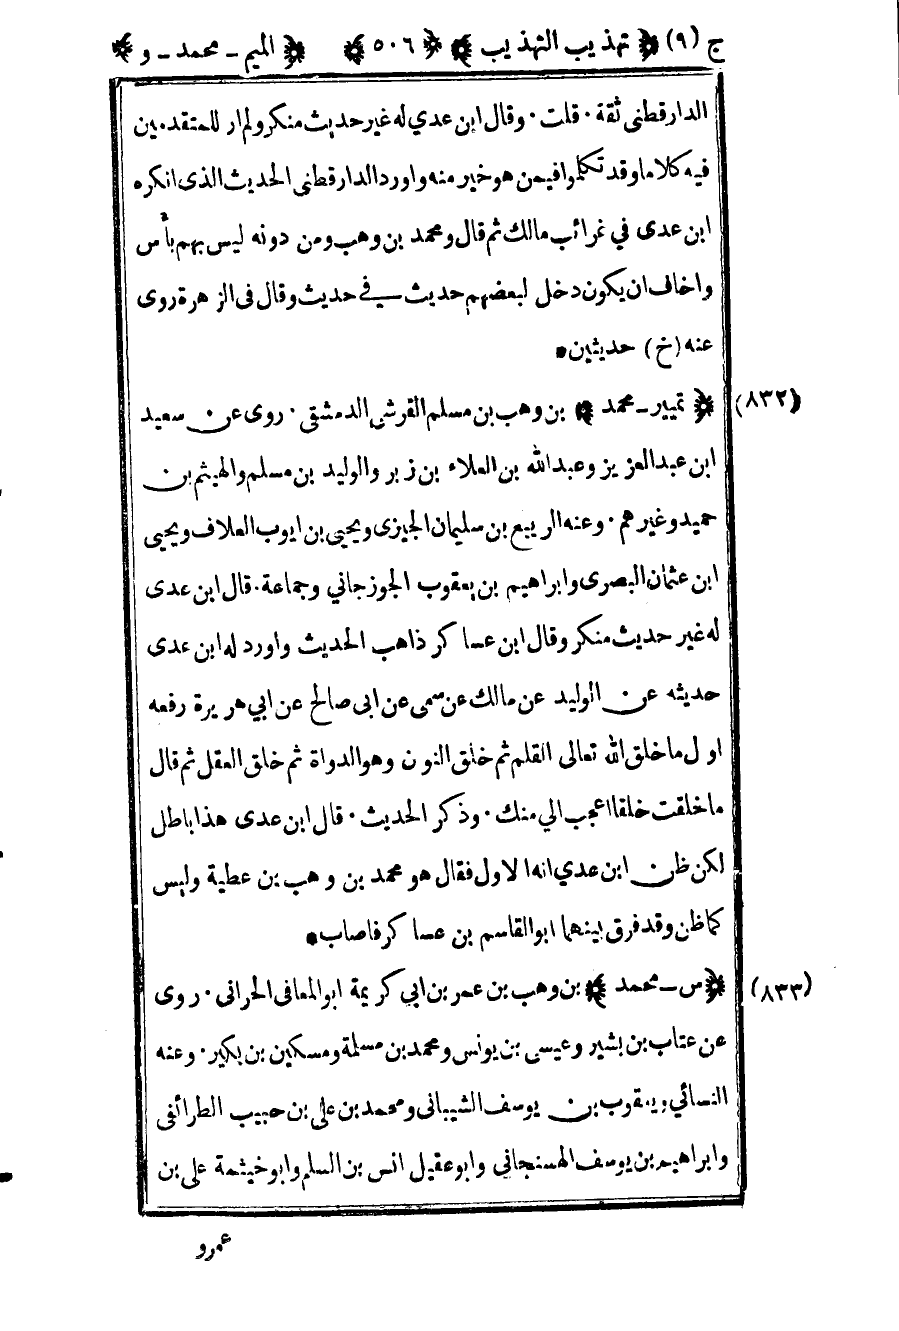 ج (٩) ﴿ تهذيب التهذيب ﴾ ﴿ ٥٠٦ ﴾ ﴿ الميم ـ محمد ـ و ﴾
الدارقطنى ثقة · قلت · وقال ابن عدي له غير حديث منكر ولم ار للمتقدمين
فيه كلاما وقد تكلموا فيمن هو خير منه واورد الدارقطنى الحديث الذى انكره
ابن عدى في غرائب مالك ثم قال ومحمد بن وهب ومن دونه ليس بهم بأس
واخاف ان يكون دخل لبعضهم حديث في حديث وقال فى الزهرة روى
عنه (خ) حديثين •
(٨٣٢) ﴿ تمييز ـ محمد ﴾ بن وهب بن مسلم القرشي الدمشقى · روى عن سعيد
ابن عبد العزيز وعبد الله بن العلاء بن زبر والوليد بن مسلم والهيثم بن
حميد وغيرهم · وعنه الربيع بن سليمان الجيزى ويحيى بن ايوب العلاف ويحيى
ابن عثمان البصرى وابراهيم بن يعقوب الجوزجاني وجماعة · قال ابن عدى
له غير حديث منكر وقال ابن عساكر ذاهب الحديث واورد له ابن عدى
حديثه عن الوليد عن مالك عن سمى عن ابى صالح عن ابي هريرة رفعه
اول ما خلق الله تعالى القلم ثم خلق النون وهو الدواة ثم خلق العقل ثم قال
ما خلقت خلقا اعجب الي منك · وذكر الحديث · قال ابن عدى هذا باطل
لكن ظن ابن عدي انه الاول فقال هو محمد بن وهب بن عطية وليس
كما ظن وقد فرق بينهما ابو القاسم بن عساكر فاصاب •
(٨٣٣) ﴿ س ـ محمد ﴾ بن وهب بن عمر بن ابي كريمة ابو المعافى الحرانى · روى
عن عتاب بن بشير وعيسى بن يونس ومحمد بن مسلمة ومسكين بن بكير · وعنه
النسائي ويعقوب بن يوسف الشيبانى ومحمد بن علي بن حبيب الطرائفى
وابراهيم بن يوسف الهسنجاني وابو عقيل انس بن السلم وابو خيثمة علي بن
عمرو